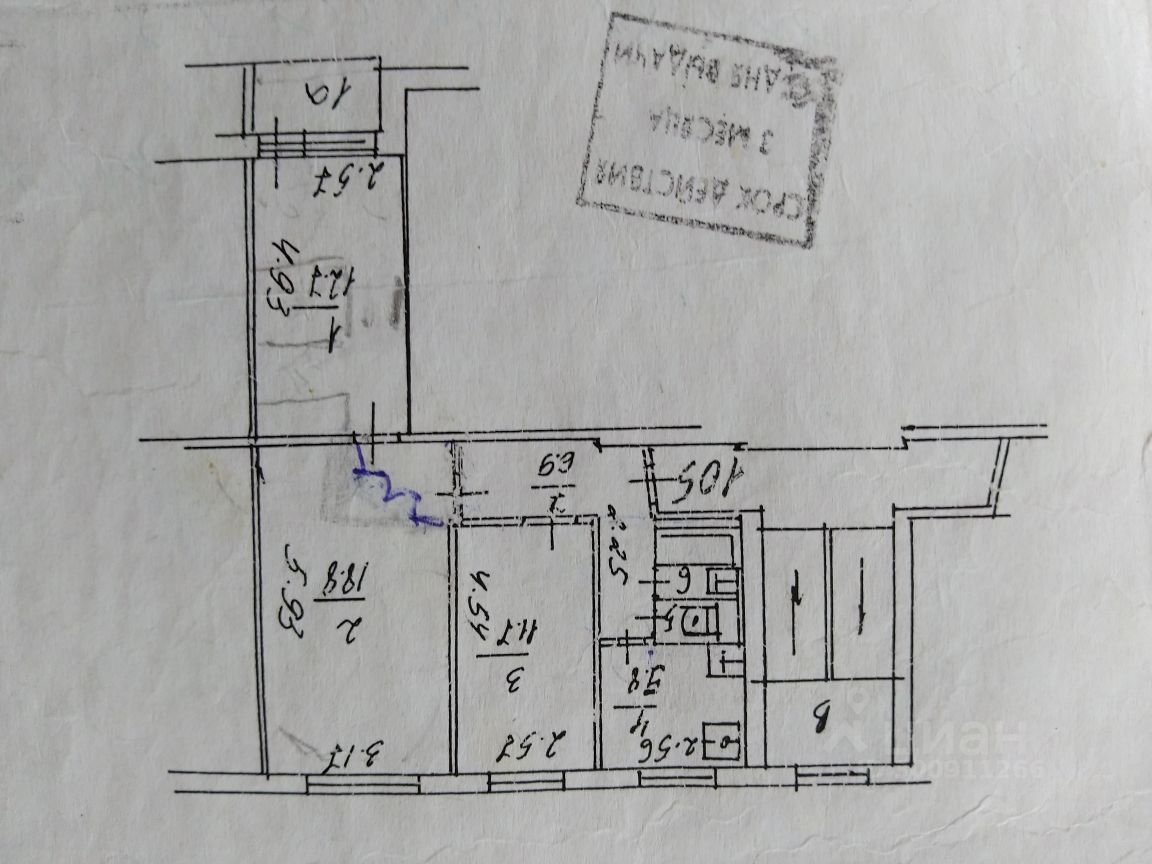 СРОК ДЕЙСТВИЯ
3 МЕСЯЦА
СО ДНЯ ВЫДАЧИ
1а
2.57
4.93
1
12.7
105
7
6.9
2.25
6
5
2
18.8
5.93
3
11.7
4.54
4
5.8
В
2.56
2.57
3.17
циан